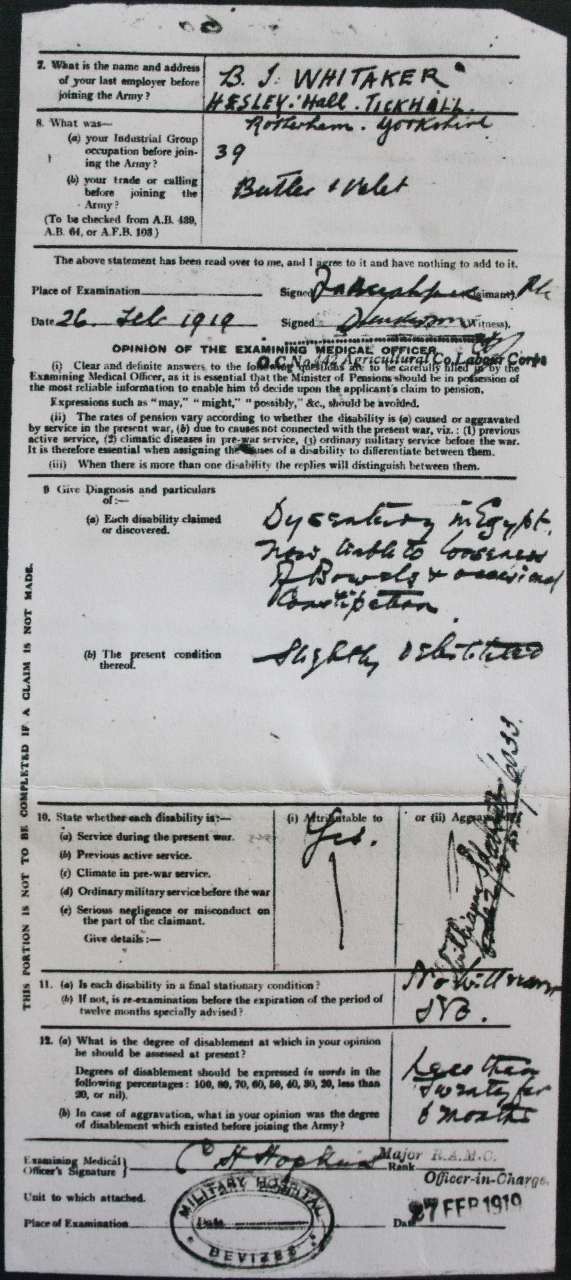 7. What is the name and address
of your last employer before
joining the Army ?
B. J. WHITAKER
HESLEY. Hall. TICKHALL.
Rotterham. Yorkshire
8. What was—
(a) your Industrial Group
occupation before join-
ing the Army ?
39
(b) your trade or calling
before joining the
Army ?
Butler & Valet
(To be checked from A.B. 439,
A.B. 64, or A.F.B. 103)
The above statement has been read over to me, and I agree to it and have nothing to add to it.
Place of Examination
Signed (Claimant).
Date 26. Feb 1919
Signed (Witness).
OPINION OF THE EXAMINING MEDICAL OFFICER.
O.C. No. 442 Agricultural Co. Labour Corps
(i) Clear and definite answers to the following questions are to be carefully filled in by the
Examining Medical Officer, as it is essential that the Minister of Pensions should be in possession of
the most reliable information to enable him to decide upon the applicant's claim to pension.
Expressions such as "may," "might," "possibly," &c., should be avoided.
(ii) The rates of pension vary according to whether the disability is (a) caused or aggravated
by service in the present war, (b) due to causes not connected with the present war, viz. : (1) previous
active service, (2) climatic diseases in pre-war service, (3) ordinary military service before the war.
It is therefore essential when assigning the causes of a disability to differentiate between them.
(iii) When there is more than one disability the replies will distinguish between them.
9 Give Diagnosis and particulars
of :—
(a) Each disability claimed
or discovered.
Dysentery in Egypt.
now liable to looseness
of Bowels & occasional
Constipation
(b) The present condition
thereof.
Slightly debilitated
THIS PORTION IS NOT TO BE COMPLETED IF A CLAIM IS NOT MADE.
10. State whether each disability is :—
(i) Attributable to
or (ii) Aggravated
(a) Service during the present war.
Yes.
(b) Previous active service.
(c) Climate in pre-war service.
(d) Ordinary military service before the war
(e) Serious negligence or misconduct on
the part of the claimant.
Give details :—
11. (a) Is each disability in a final stationary condition?
No
(b) If not, is re-examination before the expiration of the period of
twelve months specially advised?
12. (a) What is the degree of disablement at which in your opinion
he should be assessed at present?
Degrees of disablement should be expressed in words in the
following percentages : 100, 80, 70, 60, 50, 40, 30, 20, less than
20, or nil).
Less than
Twenty for
6 months
(b) In case of aggravation, what in your opinion was the degree
of disablement which existed before joining the Army?
Examining Medical
Officer's Signature
C H Hopkins
Major R.A.M.C.
Rank
Officer-in-Charge.
Unit to which attached.
Place of Examination
MILITARY HOSPITAL
Date
DEVIZES
Date 27 FEB 1919